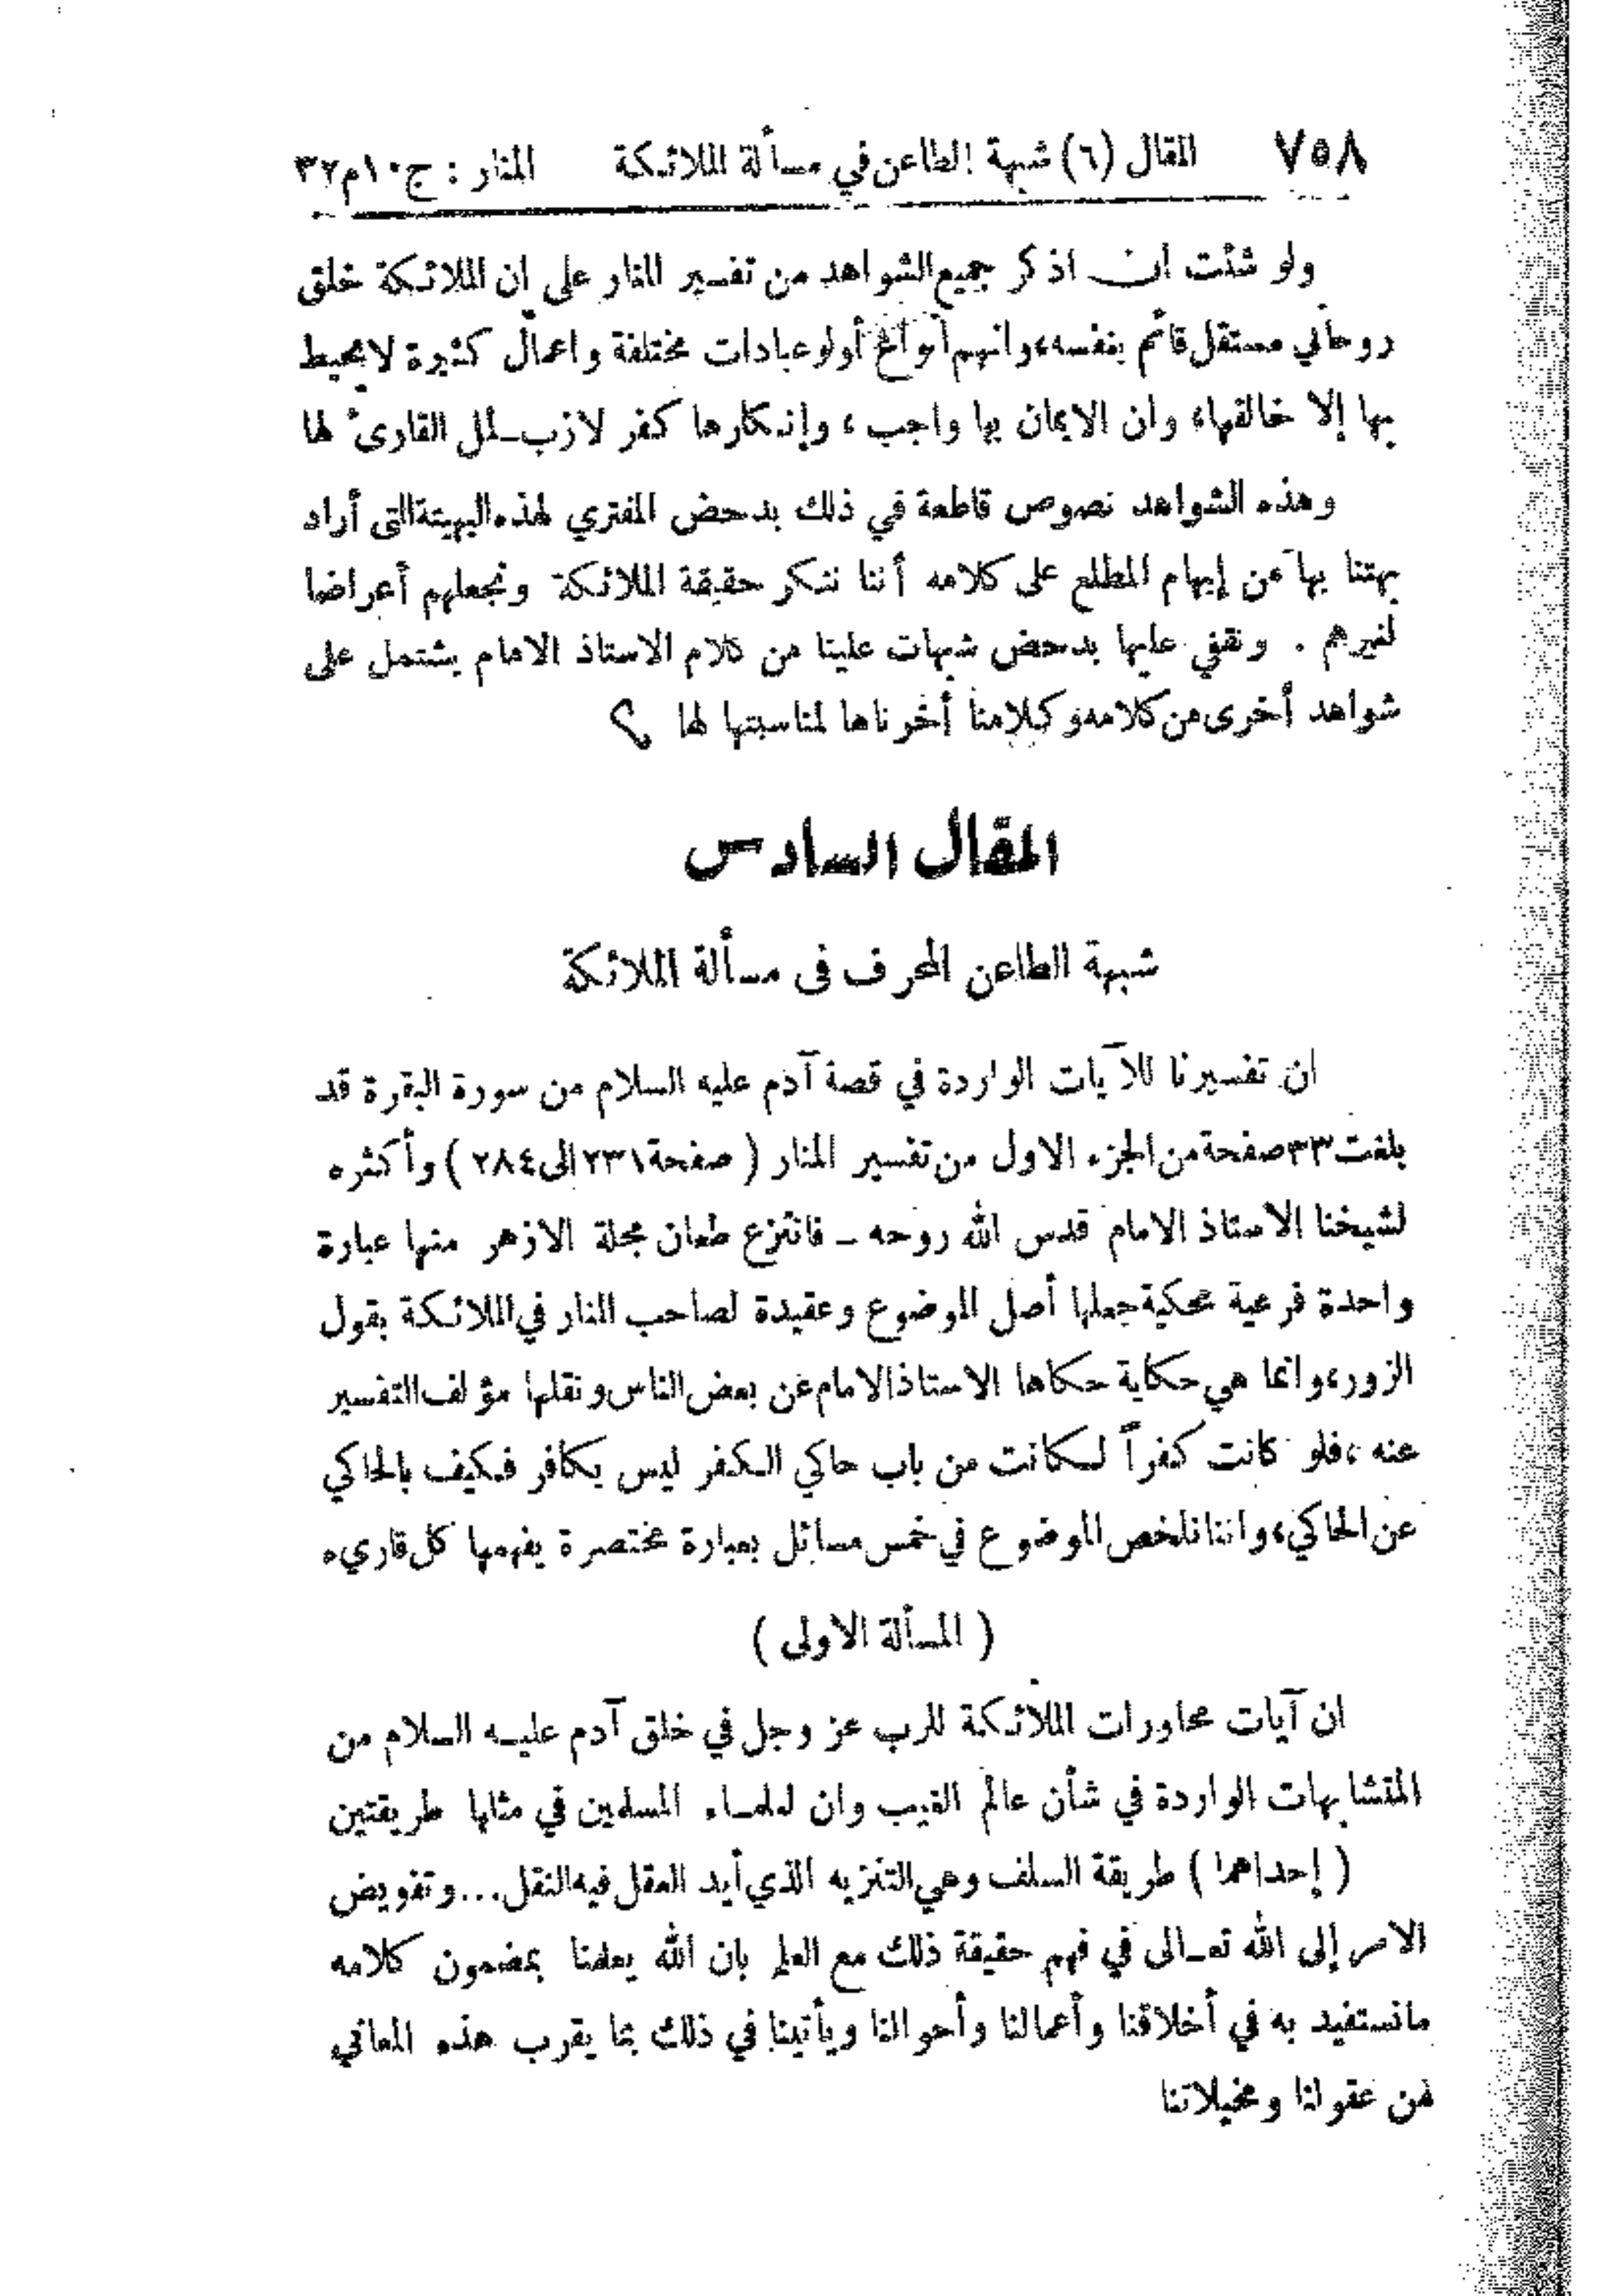 ٧٥٨ المقال (٦) شبهة الطاعن في مسألة الملائكة المنار : ج١٠م٣٢
ولو شئت ان اذكر جميع الشواهد من تفسير المنار على ان الملائكة خلق
روحاني مستقل قائم بنفسه، وانهم أنواع أولو عبادات مختلفة واعمال كثيرة لا يحيط
بها إلا خالقها، وان الايمان بها واجب ، وإنكارها كفر لازب ـ لمل القارئ لها
وهذه الشواهد نصوص قاطعة في ذلك بدحض المفتري لهذه البهيتة التى أراد
بهتنا بها من إيهام المطلع على كلامه أننا ننكر حقيقة الملائكة ونجعلهم أعراضا
لغيرهم . ونقفي عليها بدحض شبهات علينا من كلام الاستاذ الامام يشتمل على
شواهد أخرى من كلامه وكلامنا أخرناها لمناسبتها لها
المقال السادس
شبهة الطاعن المحرف فى مسألة الملائكة
ان تفسيرنا للآيات الواردة في قصة آدم عليه السلام من سورة البقرة قد
بلغت ٣٣ صفحة من الجزء الاول من تفسير المنار ( صفحة ٢٣١ الى ٢٨٤ ) وأكثره
لشيخنا الاستاذ الامام قدس الله روحه ـ فانتزع طعان مجلة الازهر منها عبارة
واحدة فرعية محكية جعلها أصل الموضوع وعقيدة لصاحب المنار في الملائكة بقول
الزور، وانما هي حكاية حكاها الاستاذ الامام عن بعض الناس ونقلها مؤلف التفسير
عنه ، فلو كانت كفراً لكانت من باب حاكي الكفر ليس بكافر فكيف بالحاكي
عن الحاكي، واننا نلخص الموضوع في خمس مسائل بعبارة مختصرة يفهمها كل قاريء
( المسألة الاولى )
ان آيات محاورات الملائكة للرب عز وجل في خلق آدم عليه السلام من
المتشابهات الواردة في شأن عالم الغيب وان لعلماء المسلمين في مثلها طريقتين
( إحداهما ) طريقة السلف وهي التنزيه الذي أيد العقل فيه النقل... وتفويض
الامر إلى الله تعالى في فهم حقيقة ذلك مع العلم بان الله يعلمنا بمضمون كلامه
مانستفيد به في أخلاقنا وأعمالنا وأحوالنا ويأتينا في ذلك بما يقرب هذه المعاني
من عقولنا ومخيلاتنا